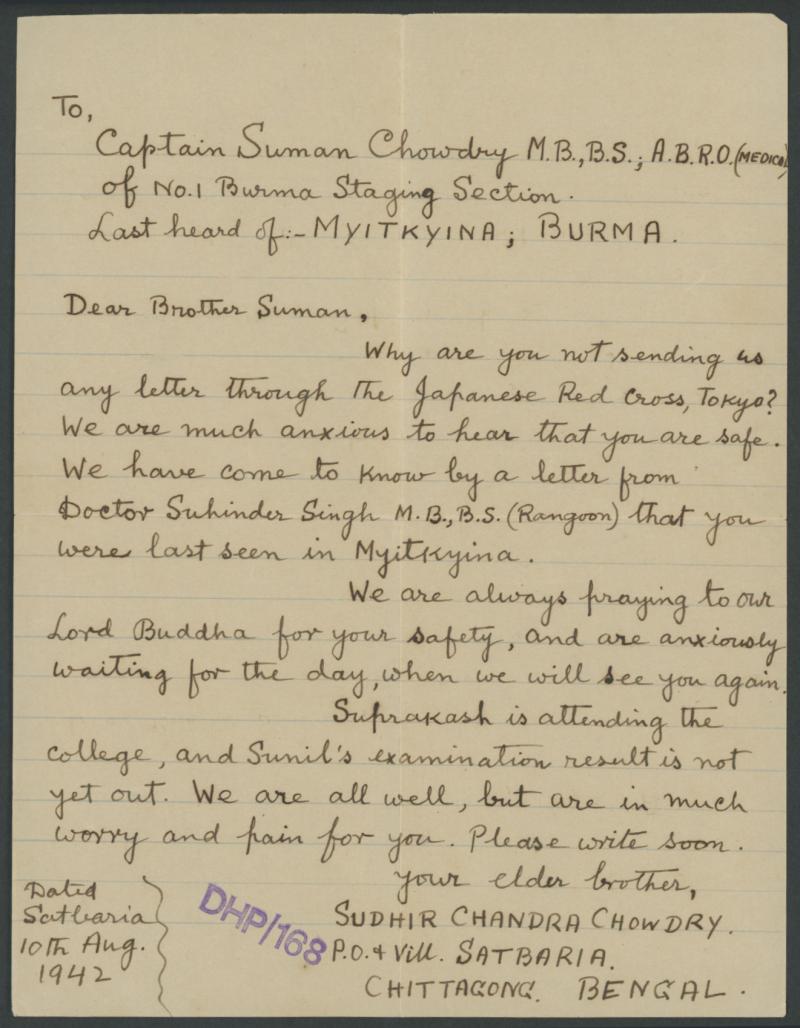 To,
Captain Suman Chowdry M.B., B.S.; A.B.R.O. (MEDICAL)
of No.1 Burma Staging Section.
Last heard of:- MYITKYINA; BURMA.
Dear Brother Suman,
Why are you not sending us
any letter through the Japanese Red Cross, Tokyo?
We are much anxious to hear that you are safe.
We have come to know by a letter from
Doctor Suhinder Singh M.B., B.S. (Rangoon) that you
were last seen in Myitkyina.
We are always praying to our
Lord Buddha for your safety, and are anxiously
waiting for the day, when we will see you again.
Suprakash is attending the
college, and Sunil's examination result is not
yet out. We are all well, but are in much
worry and pain for you. Please write soon.
Your elder brother,
SUDHIR CHANDRA CHOWDRY.
P.O. & Vill. SATBARIA.
CHITTAGONG. BENGAL.
Dated
Satbaria
10th Aug.
1942
DHP/168